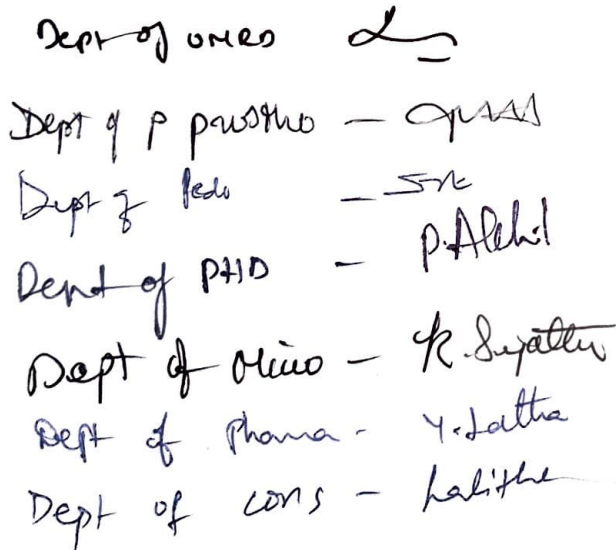 Dept of OMRD
Dept of P prostho -
Dept of Pedo -
Dept of PHD - P. Akhil
Dept of Micro - K. Sujatha
Dept of Phama - Y. Latha
Dept of cons - Lalitha